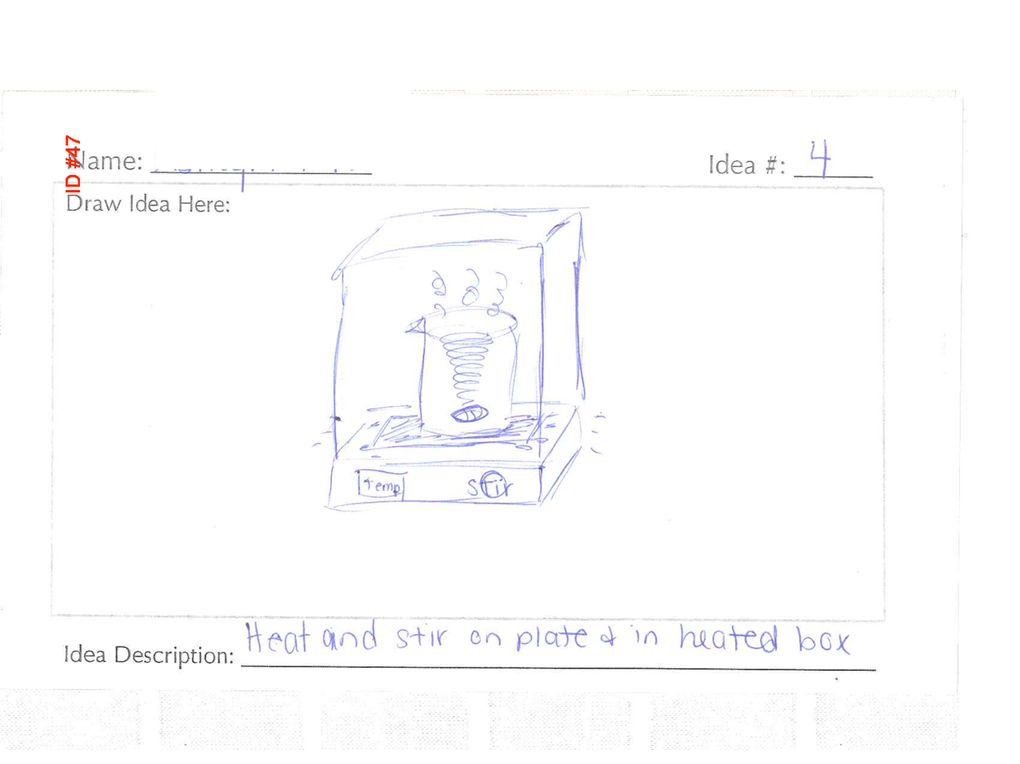 ID #47
Name:
Idea #: 4
Draw Idea Here:
temp
stir
Idea Description: Heat and stir on plate & in heated box